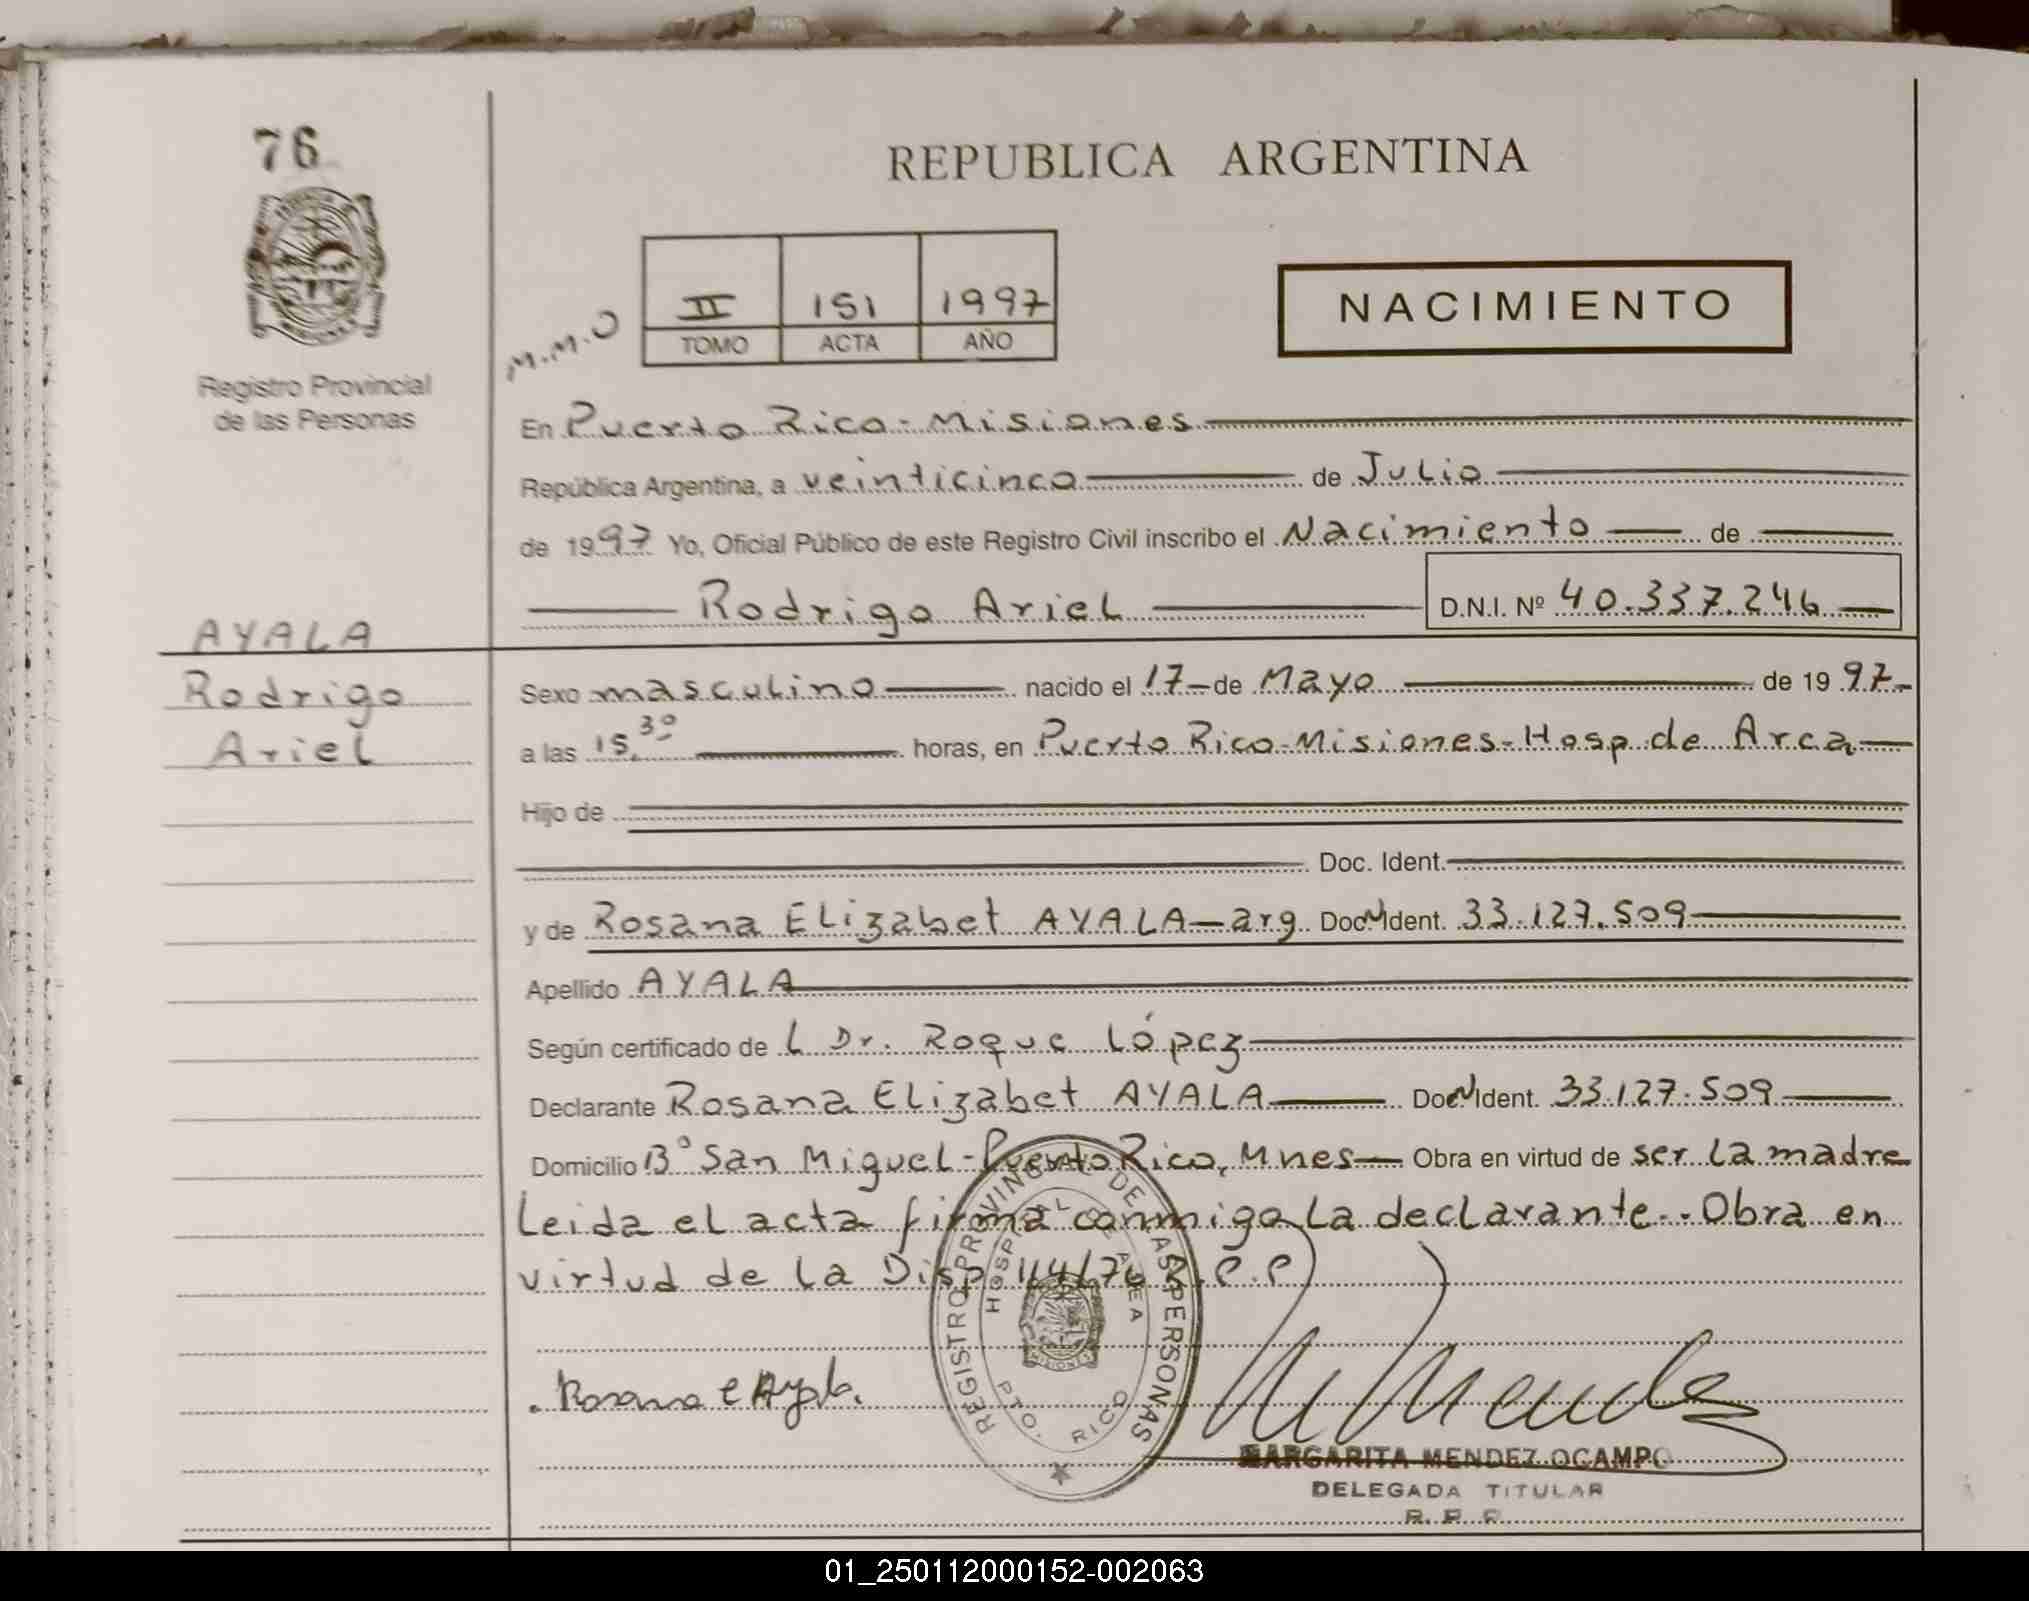 76
REPUBLICA ARGENTINA
II 151 1997
TOMO ACTA AÑO
M.M.O
NACIMIENTO
Registro Provincial
de las Personas
En Puerto Rico - Misiones
República Argentina, a veinticinco de Julio
de 1997 Yo, Oficial Público de este Registro Civil inscribo el Nacimiento de
Rodrigo Ariel D.N.I. Nº 40.337.246
AYALA
Rodrigo
Ariel
Sexo masculino nacido el 17 de Mayo de 1997
a las 15.30 horas, en Puerto Rico - Misiones - Hosp. de Area
Hijo de
Doc. Ident.
y de Rosana Elizabet AYALA - arg. Doc. N Ident. 33.127.509
Apellido AYALA
Según certificado de l Dr. Roque López
Declarante Rosana Elizabet AYALA Doc. N Ident. 33.127.509
Domicilio Bº San Miguel - Puerto Rico, Mnes Obra en virtud de ser la madre
Leida el acta firma conmigo la declarante.. Obra en
virtud de la Disp. 114/76 R.P.P
REGISTRO PROVINCIAL DE LAS PERSONAS
HOSPITAL DE AREA
MISIONES
PTO. RICO
Rosana E Ayala.
M Mendez
MARGARITA MENDEZ OCAMPO
DELEGADA TITULAR
R. P. P.
01_250112000152-002063